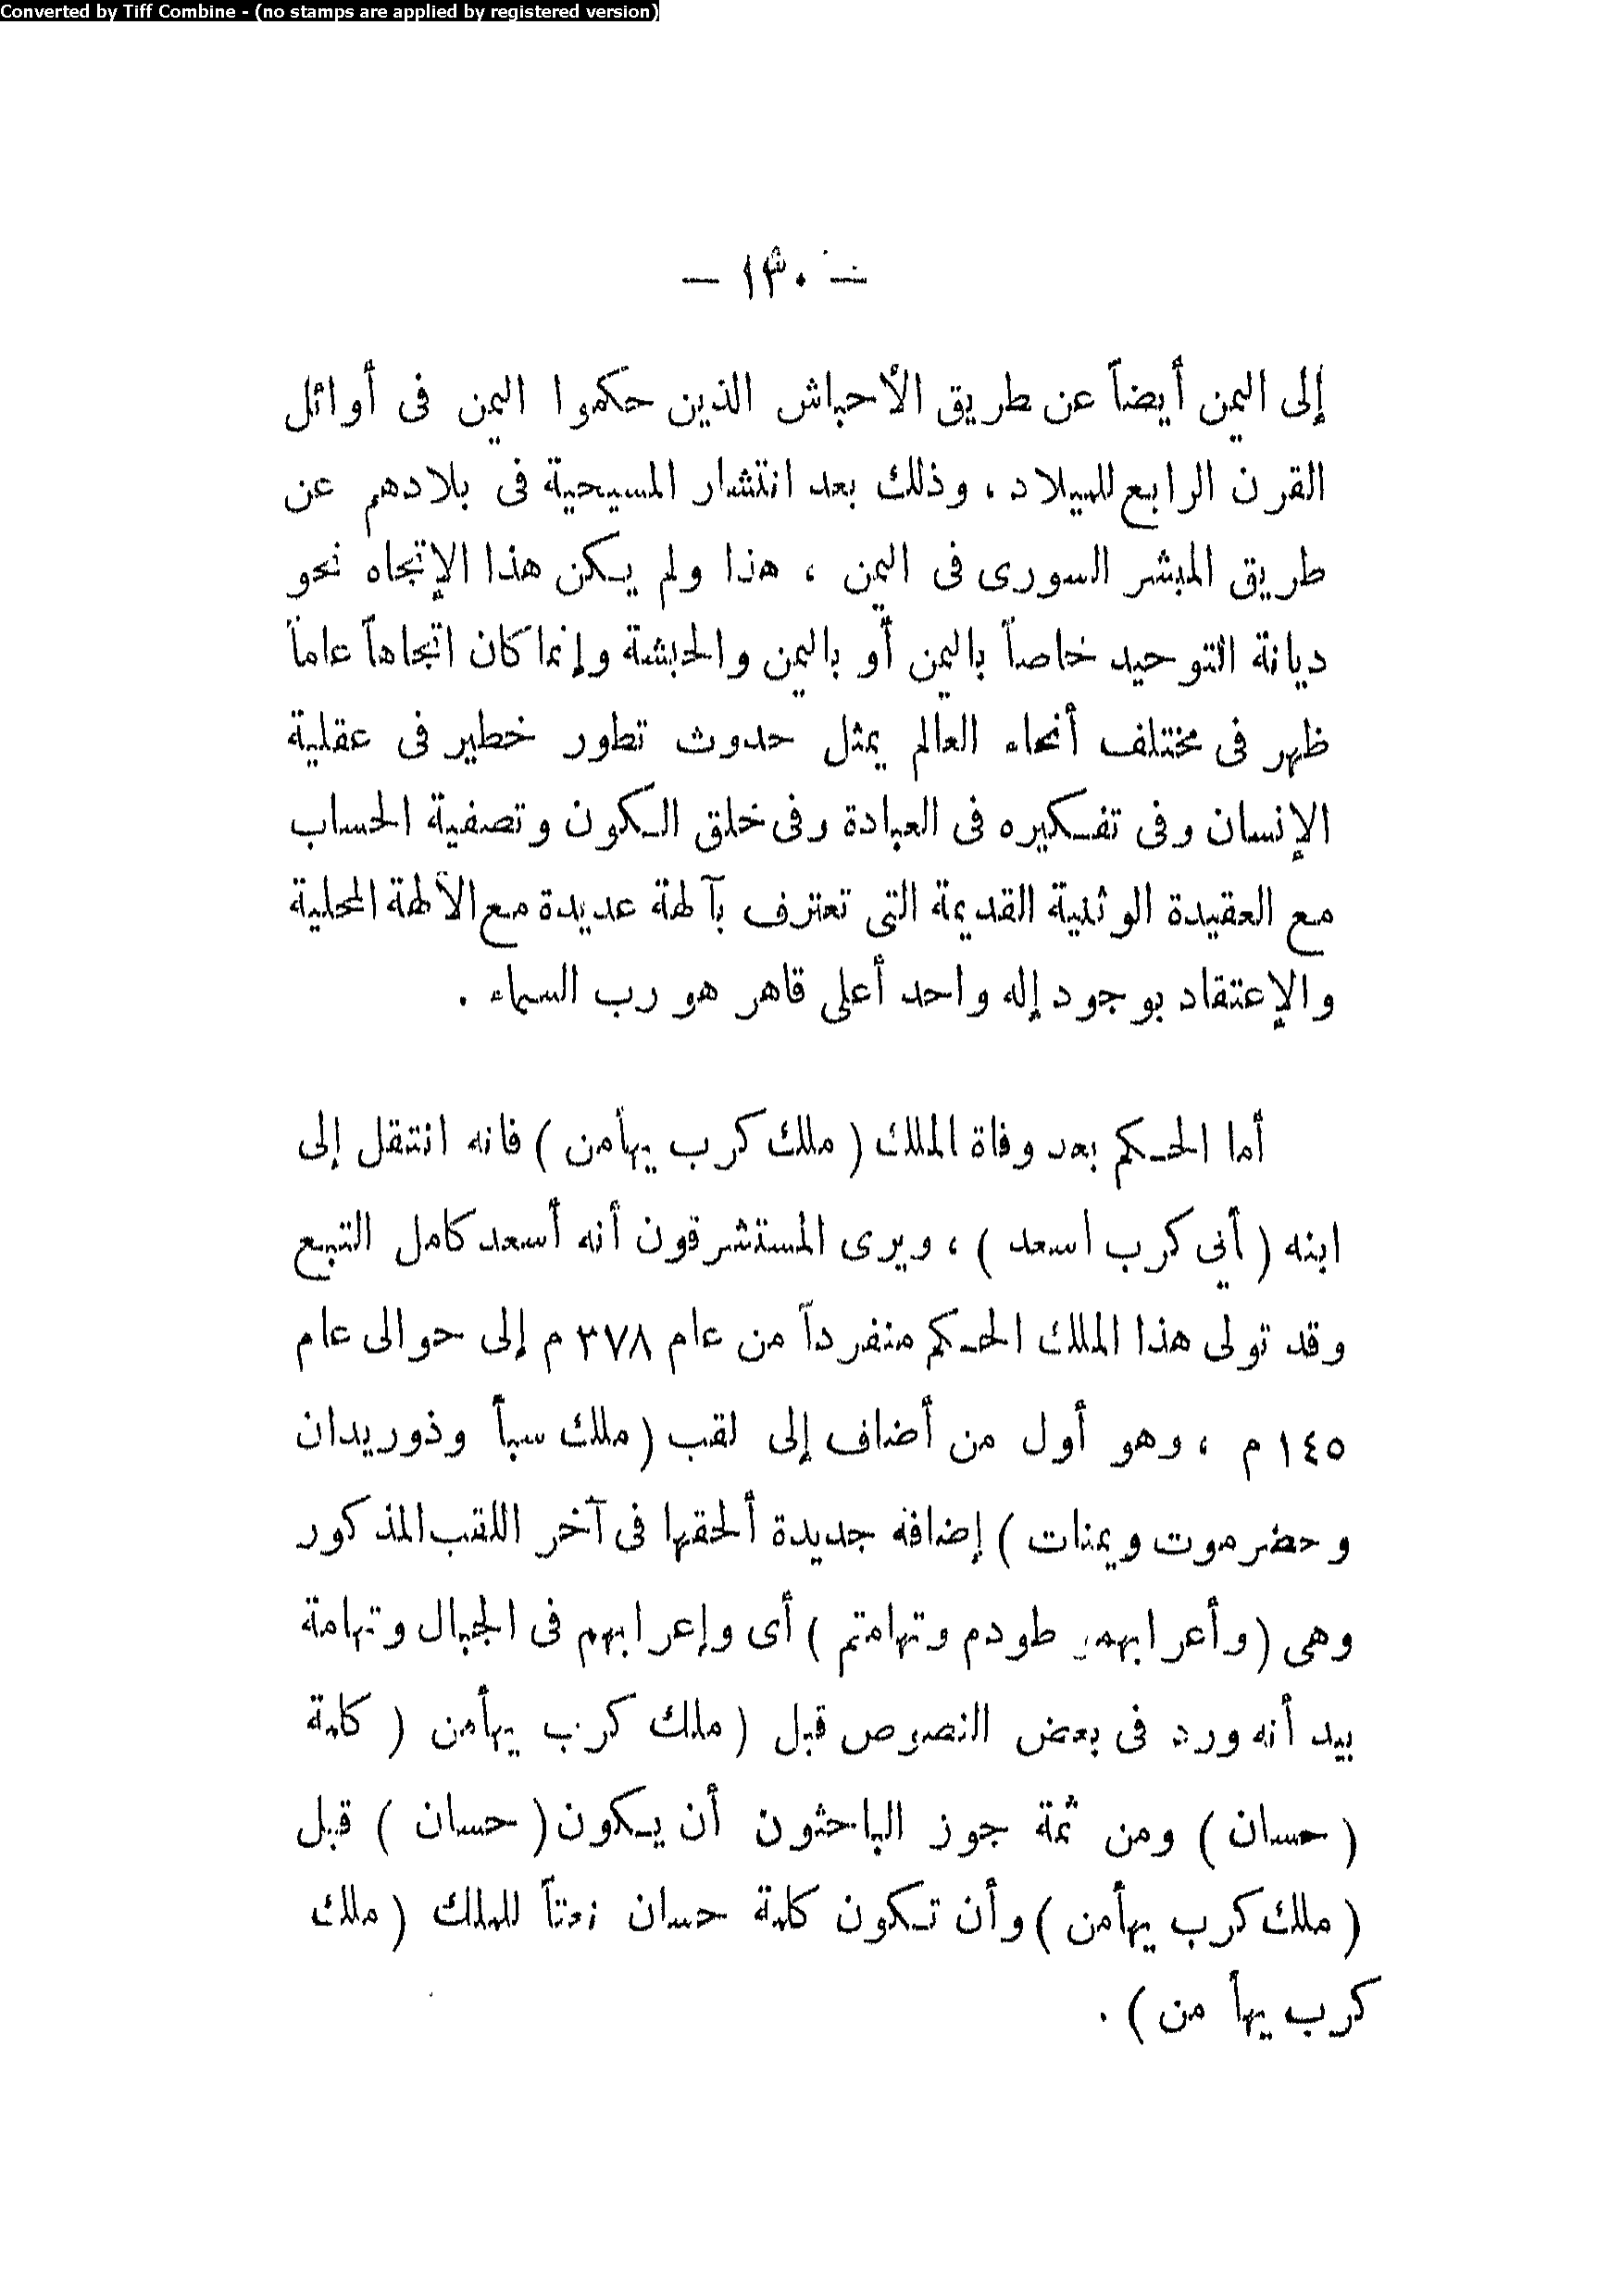 Converted by Tiff Combine - (no stamps are applied by registered version)
— ١٣٠ —
إلى اليمن أيضاً عن طريق الأحباش الذين حكموا اليمن فى أوائل
القرن الرابع للميلاد ، وذلك بعد انتشار المسيحية فى بلادهم عن
طريق المبشر السورى فى اليمن ، هذا ولم يكن هذا الإتجاه نحو
ديانة التوحيد خاصاً باليمن أو باليمن والحبشة وإنما كان اتجاهاً عاماً
ظهر فى مختلف أنحاء العالم يمثل حدوث تطور خطير فى عقلية
الإنسان وفى تفكيره فى العبادة وفى خلق الكون وتصفية الحساب
مع العقيدة الوثنية القديمة التى تعترف بآلهة عديدة مع الآلهة المحلية
والإعتقاد بوجود إله واحد أعلى قاهر هو رب السماء .
أما الحكم بعد وفاة الملك ( ملك كرب يهأمن ) فانه انتقل إلى
ابنه ( أبي كرب اسعد ) ، ويرى المستشرقون أنه أسعد كامل التبع
وقد تولى هذا الملك الحكم منفرداً من عام ٣٧٨ م إلى حوالى عام
١٤٥ م ، وهو أول من أضاف إلى لقب ( ملك سبأ وذوريدان
وحضرموت ويمنات ) إضافه جديدة ألحقها فى آخر اللقب المذكور
وهى ( وأعرابهمر طودم وتهامتم ) أى وإعرابهم فى الجبال وتهامة
بيد أنه ورد فى بعض النصوص قبل ( ملك كرب يهأمن ( كلمة
( حسان ) ومن ثمة جوز الباحثون أن يكون ( حسان ) قبل
( ملك كرب يهأمن ) وأن تكون كلمة حسان نعتاً للملك ( ملك
كرب يهأ من ) .